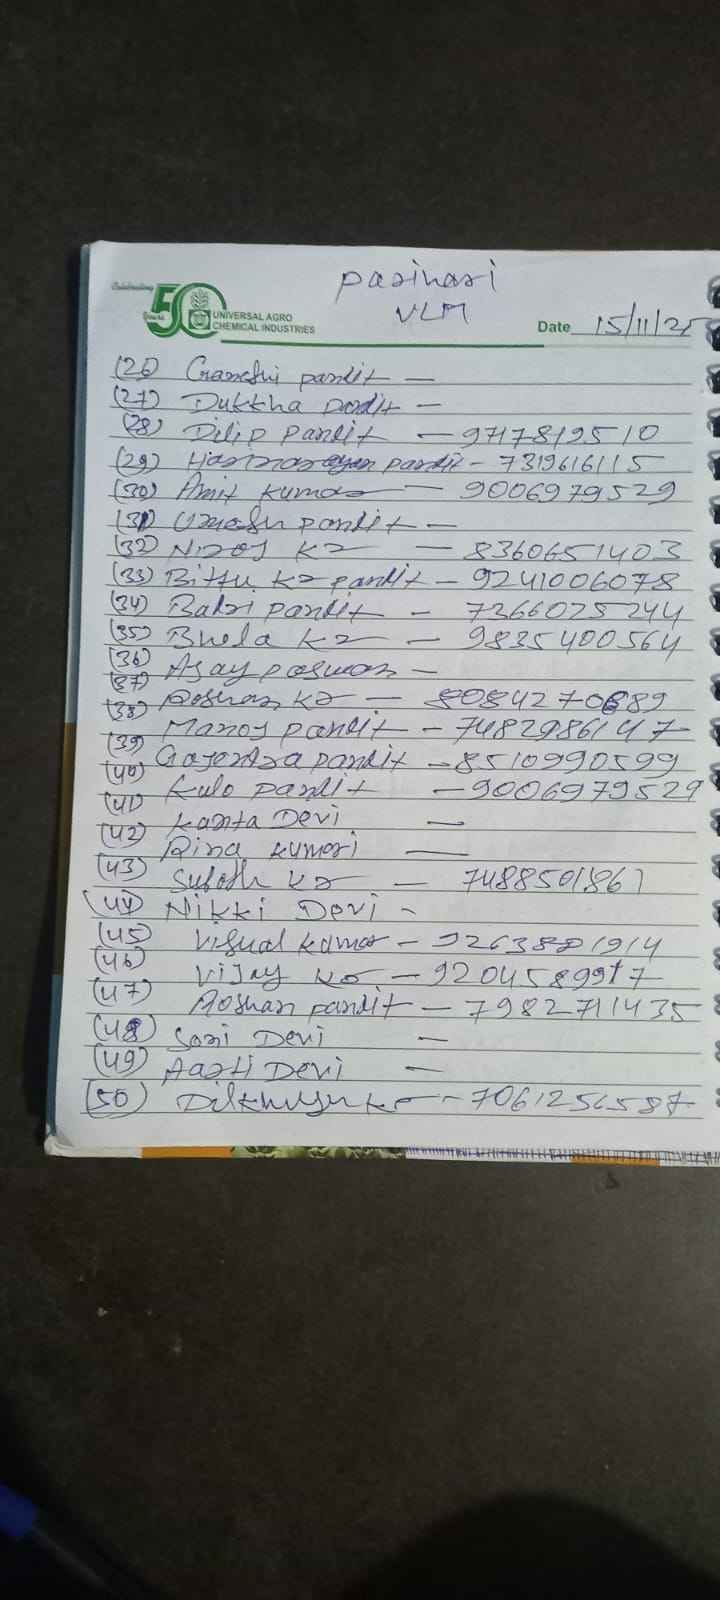 Celebrating
50
Years
UNIVERSAL AGRO
CHEMICAL INDUSTRIES
parihari
VLM
Date 15/11/25
(26) Ganeshi pandit —
(27) Dukkha pandit —
(28) Dilip pandit — 9717819510
(29) Harinarayan pandit - 7319616115
(30) Amit kumar — 9006979529
(31) Umesh pandit —
(32) Niroj kr — 8360651403
(33) Bittu kr pandit — 9241006078
(34) Balri pandit - 7366025244
(35) Bhola kr - 9835400564
(36) Ajay paswan —
(37) Roshan kr — 8084270689
(38) Manoj pandit - 7482986147
(39) Gajendra pandit - 8510990599
(40) Kulo pandit - 9006979529
(41) Kanta Devi —
(42) Rina kumari —
(43) Subodh kr — 7488501861
(44) Nikki Devi -
(45) Vishal kumar - 9263881914
(46) Vijay kr — 9204589917
(47) Roshan pandit — 7982711435
(48) Soni Devi —
(49) Aarti Devi —
(50) Dilkhush kr - 7061256587